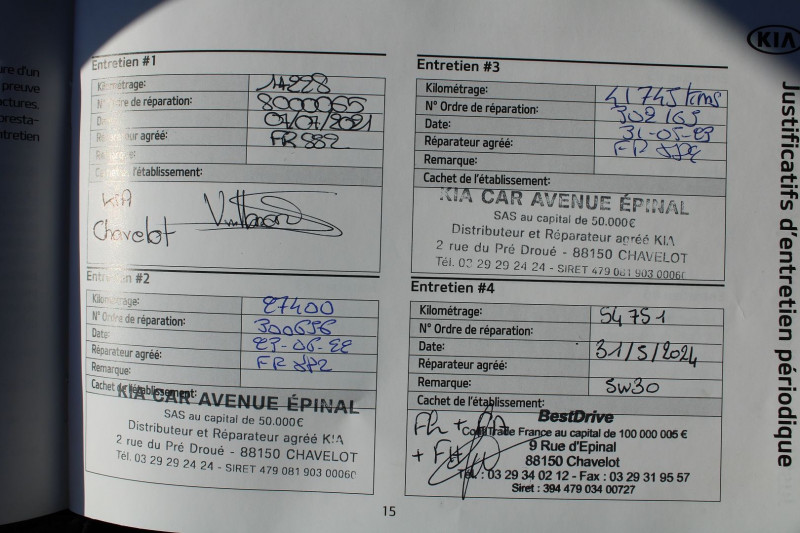 KIA
Justificatifs d'entretien périodique
Entretien #1
Kilométrage: 14228
N° Ordre de réparation: 8000065
07/07/2021
Réparateur agréé: FR 882
Cachet de l'établissement:
KIA
Chavelot
Entretien #2
Kilométrage: 27400
N° Ordre de réparation: 300656
Date:
Réparateur agréé: FR 882
Remarque:
Cachet de l'établissement:
KIA CAR AVENUE ÉPINAL
SAS au capital de 50.000€
Distributeur et Réparateur agréé KIA
2 rue du Pré Droué - 88150 CHAVELOT
Tél. 03 29 29 24 24 - SIRET 479 081 903 00060
Entretien #3
Kilométrage: 41745 kms
N° Ordre de réparation: 302163
Date: 31-05-23
Réparateur agréé: FR 882
Remarque:
Cachet de l'établissement:
KIA CAR AVENUE ÉPINAL
SAS au capital de 50.000€
Distributeur et Réparateur agréé KIA
2 rue du Pré Droué - 88150 CHAVELOT
Tél. 03 29 29 24 24 - SIRET 479 081 903 00060
Entretien #4
Kilométrage: 54751
N° Ordre de réparation:
Date: 31/5/2024
Réparateur agréé:
Remarque: 5w30
Cachet de l'établissement:
BestDrive
Trade France au capital de 100 000 005 €
9 Rue d'Epinal
88150 Chavelot
Tél. : 03 29 34 02 12 - Fax : 03 29 31 95 57
Siret : 394 479 034 00727
15